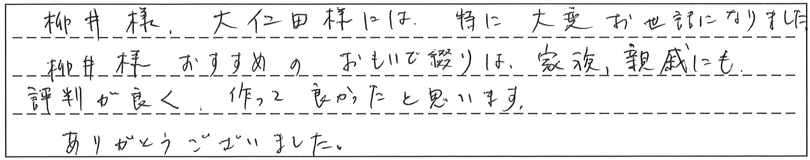 柳井様、大仁田様には、特に大変お世話になりました
柳井様おすすめのおもいで綴りは、家族、親戚にも
評判が良く、作って良かったと思います。
ありがとうございました。